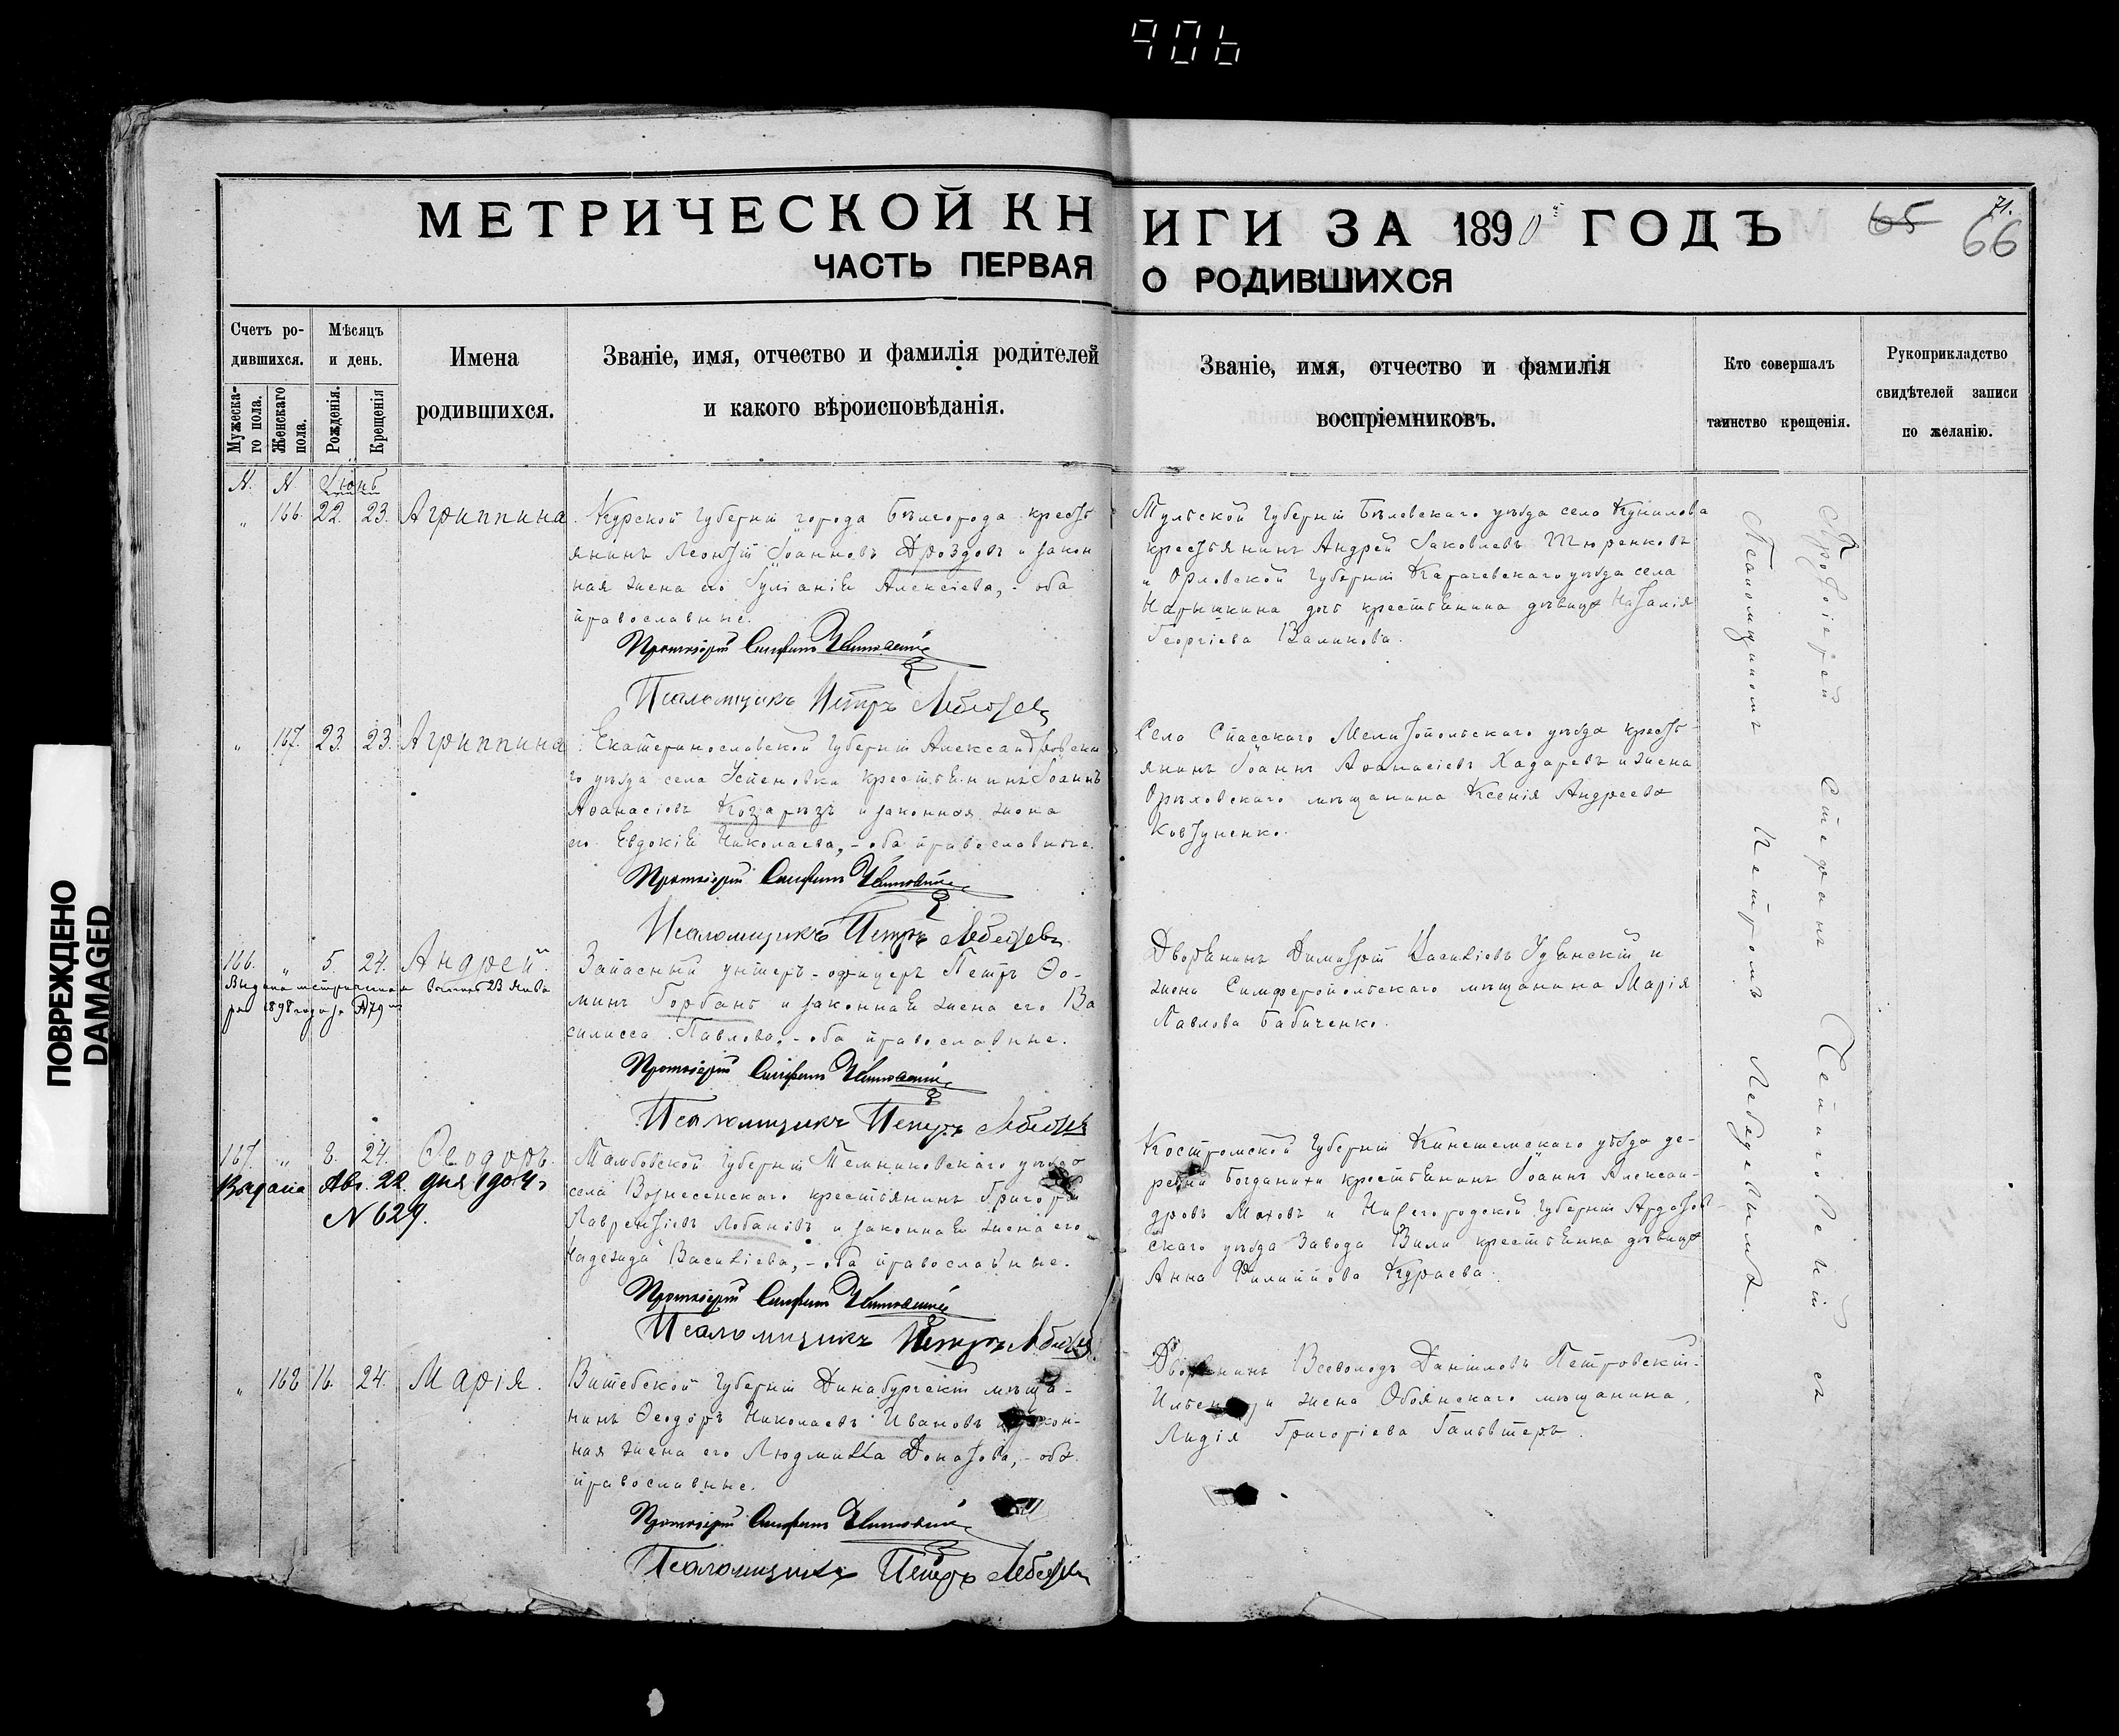 906
МЕТРИЧЕСКОЙ КНИГИ ЗА 1890й ГОДЪ
65 66 71.
ЧАСТЬ ПЕРВАЯ О РОДИВШИХСЯ
Счетъ родившихся.
Мужескаго пола.
Женскаго пола.
Мѣсяцъ и день.
Рожденія.
Крещенія
Имена родившихся.
Званіе, имя, отчество и фамилія родителей
и какого вѣроисповѣданія.
Званіе, имя, отчество и фамилія
воспріемниковъ.
Кто совершалъ
таинство крещенія.
Рукоприкладство
свидѣтелей записи
по желанію.
Іюнь
" 166. 22. 23. Агриппина.
Курской губерніи города Бѣлгорода кресть
янинъ Леонтій Іоанновъ Дроздовъ и закон
ная жена его Іуліанія Алексіева, - оба
православные.
Протоіерей
Псаломщикъ Петръ Лебедевъ
Тульской губерніи Бѣлевскаго уѣзда села
крестьянинъ Андрей Іаковлевъ Тюренковъ
и Орловской губерніи Карачевскаго уѣзда села
Нарышкина дочь крестьянина дѣвица Наталія
Георгіева
" 167. 23. 23. Агриппина
Екатеринославской губерніи Александровска
го уѣзда села Успеновки крестьянинъ Іоаннъ
Аѳанасіевъ и законная жена
его Евдокія Николаева, - оба православные.
Протоіерей
Псаломщикъ Петръ Лебедевъ
Села Спасскаго Мелитопольскаго уѣзда кресть
янинъ Іоаннъ Аѳанасіевъ и жена
Орѣховскаго мѣщанина Ксенія Андреева
Ковтуненко.
166. " 5. 24. Андрей.
Выдана метрическая выпись 23 Янва
ря 1898 года за №79
Запасный унтеръ-офицеръ Петръ Ѳо-
минъ Горбань и законная жена его Ва
силисса Павлова, - оба православные.
Протоіерей
Псаломщикъ Петръ Лебедевъ
Дворянинъ Димитрій Василіевъ и
жена Симферопольскаго мѣщанина Марія
Павлова Бабиченко.
167. " 8. 24. Ѳеодоръ.
Выдана Авг. 22 дня 1904 г.
N 629.
Тамбовской губерніи Темниковскаго уѣзда
села Вознесенскаго крестьянинъ Григорій
Лаврентіевъ Лобановъ и законная жена его
Надежда Василіева, - оба православные.
Протоіерей
Псаломщикъ Петръ Лебедевъ
Костромской губерніи Кинешемскаго уѣзда де-
ревни Богданихи крестьянинъ Іоаннъ Алексан-
дровъ Моховъ и Нижегородской губерніи Ардатов
скаго уѣзда завода Вили крестьянка дѣвица
Анна Филиппова Кураева.
" 168 16. 24. Марія.
Витебской губерніи Динабургскій мѣща-
нинъ Ѳеодоръ Николаевъ Ивановъ и закон-
ная жена его Людмилла Донатова, - оба
православные.
Протоіерей
Псаломщикъ Петръ Лебедевъ
Дворянинъ Всеволодъ Даніиловъ Петровскій-
и жена Обоянскаго мѣщанина
Лидія Григоріева
Протоіерей Стефанъ съ
Псаломщикомъ Петромъ Лебедевымъ.
ПОВРЕЖДЕНО
DAMAGED